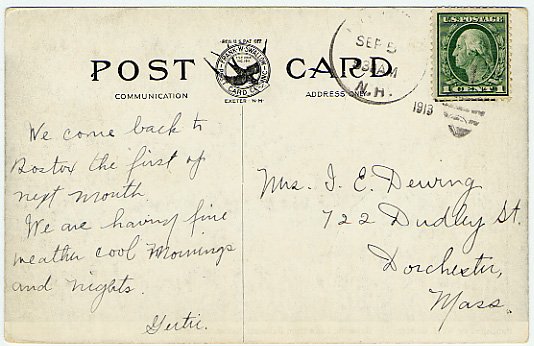 REG. U.S. PAT. OFF.
FRANK W. SWALLOW
POST CARD
EXETER - N-H-
COMMUNICATION
ADDRESS ONLY
SEP 5
AM
N.H.
1913
U.S. POSTAGE
1 CENT 1
We come back to
Boston the first of
next month.
We are having fine
weather cool mornings
and nights.
Gertie.
Mrs. I. E. Dewing
722 Dudley St.
Dorchester,
Mass.